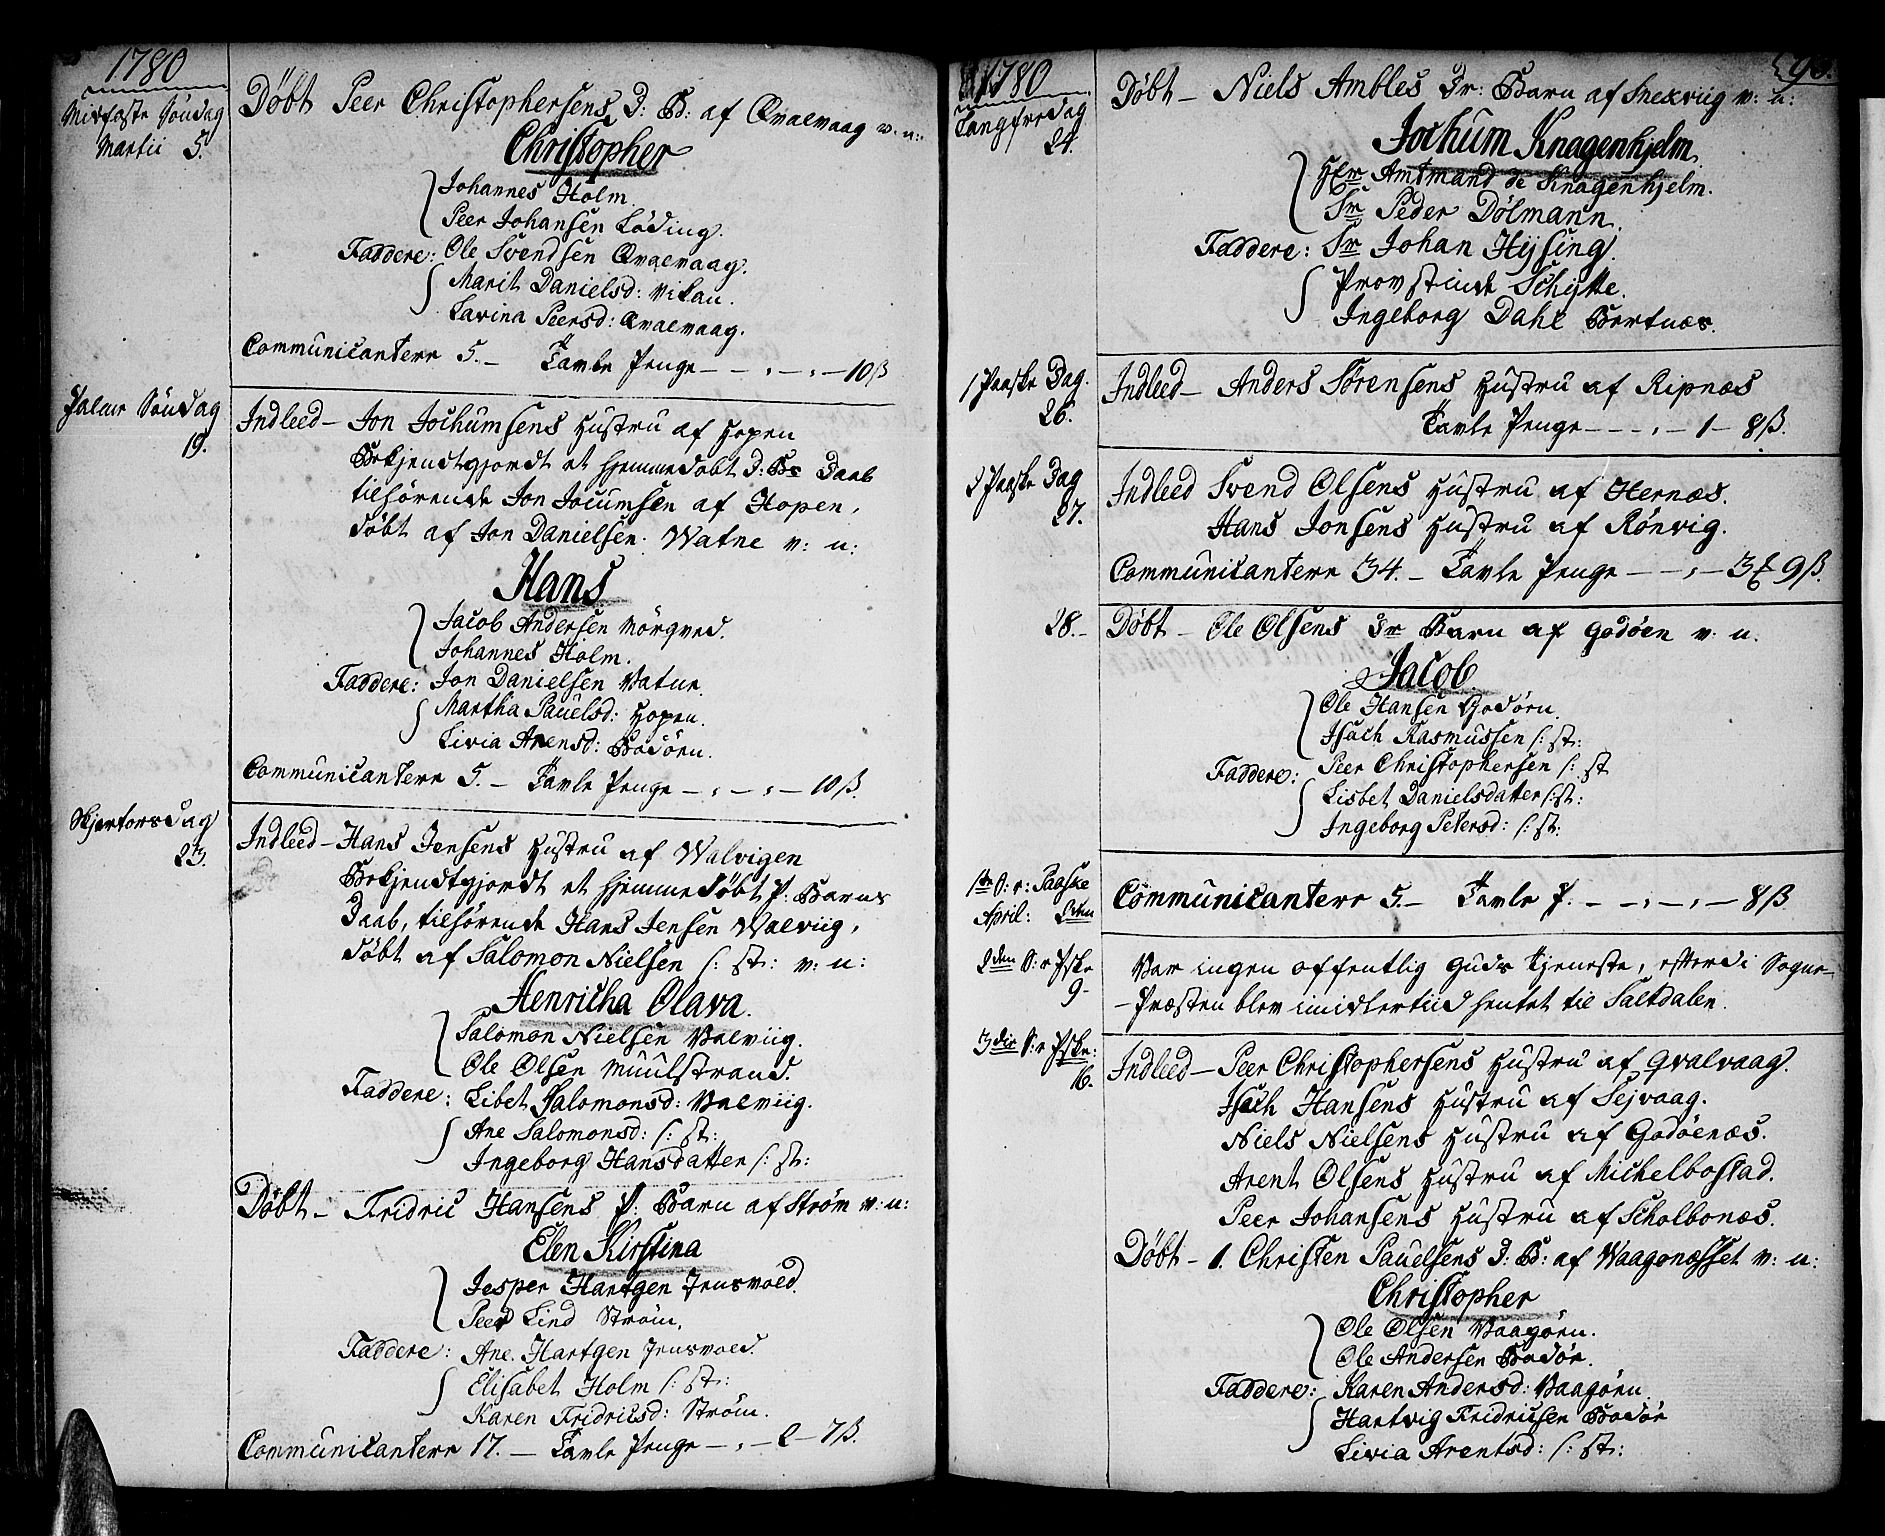 1780
Midfaste Søndag
Martii 5.
Døbt Peer Christophersens D: B: af Qvalvaag v: n:
Christopher
Johannes Holm.
Peer Johansen Løding.
Faddere: Ole Svendsen Qvalvaag.
Marit Danielsd: Vikan.
Lavina Peersd: Qvalvaag.
Communicantere 5. – Tavle Penge – – . – . – 10 ß
Palme Søndag
19.
Indleed – Jon Jochumsens Hustru af Hopen
Bekjendtgjordt et hjemmedøbt D: Bs Daab
tilhørende Jon Jocumsen af Hopen,
døbt af Jon Danielsen Watne v: n:
Hans
Jacob Andersen Mörqved.
Johannes Holm.
Faddere: Jon Danielsen Vatne.
Martha Pauelsd: Hopen.
Livia Arensd: Bodøen.
Communicantere 5. – Tavle Penge – . – . – 10 ß.
Skjertorsdag
23.
Indleed – Hans Jensens Hustru af Walvigen
Bekjendtgjordt et hjemmedøbt P: Barns
Daab, tilhørende Hans Jensen Walviig,
døbt af Salomon Nielsen /: st: v: n:
Henricha Olava.
Salomon Nielsen Valviig.
Ole Olsen Muulstrand.
Faddere: Libet Salomonsd: Valviig.
Ane Salomonsd: /: st:
Ingeborg Hansdatter /: st:
Døbt – Fridric Hansens P: Barn af Strøm v: n:
Elen Kirstina
Jesper Hartgen Jensvold.
Peer Lind Strøm.
Faddere: Ane Hartgen Jensvold.
Elisabet Holm /: st:
Karen Fridricsd: Strøm.
Communicantere 17. – Tavle Penge – . – 2 – 7 ß.
1780
90.
Langfredag
24.
Døbt – Niels Ambles Dr: Barn af Snekviig v: n:
Jochum Knagenhjelm
Hr Amtmand de Knagenhjelm.
Sr Peder Dølmann.
Faddere: Sr Johan Hysing.
Provstinde Schytte.
Ingeborg Dahl Bertnæs.
1 Paaske Dag.
26.
Indleed – Anders Sørensens Hustru af Ripnæs
Tavle Penge – – – . – 1 – 8 ß.
2 Paaske Dag
27.
Indleed Svend Olsens Hustru af Hernæs.
Hans Jonsens Hustru af Rønvig.
Communicantere 34. – Tavle Penge – – . – 3 9 ß.
28. –
Døbt – Ole Olsens Dr Barn af Godøen v: n.
Jacob
Ole Hansen Godøen
Isach Rasmussen /: st:
Faddere: Peer Christophersen /: st
Lisbet Danielsdatter /: st:
Ingeborg Petersd: /: st:
1ste S: e: Paaske
April: 2den
Communicantere 5. – Tavle P. – – . – . – 8 ß
2den S: e Pske
9 –
Var ingen offentlig Guds Tjeneste, efterdi Sogne-
-Præsten blev imidlertiid hentet til Saltdalen.
3die S: e Pske:
16.
Indleed – Peer Christophersens Hustru af Qvalvaag.
Isach Hansens Hustru af Sejvaag.
Niels Nielsens Hustru af Godøenæs.
Arent Olsens Hustru af Michelbostad.
Peer Johansens Hustru af Scholbonæs.
Døbt – 1. Christen Pauelsens D: B: af Waagonæsset v: n:
Christopher
Ole Olsen Vaagøen.
Ole Andersen Bodøe.
Faddere: Karen Andersd: Vaagøen.
Hartvig Fridricsen Bodøe
Livia Arentsd: /: st: